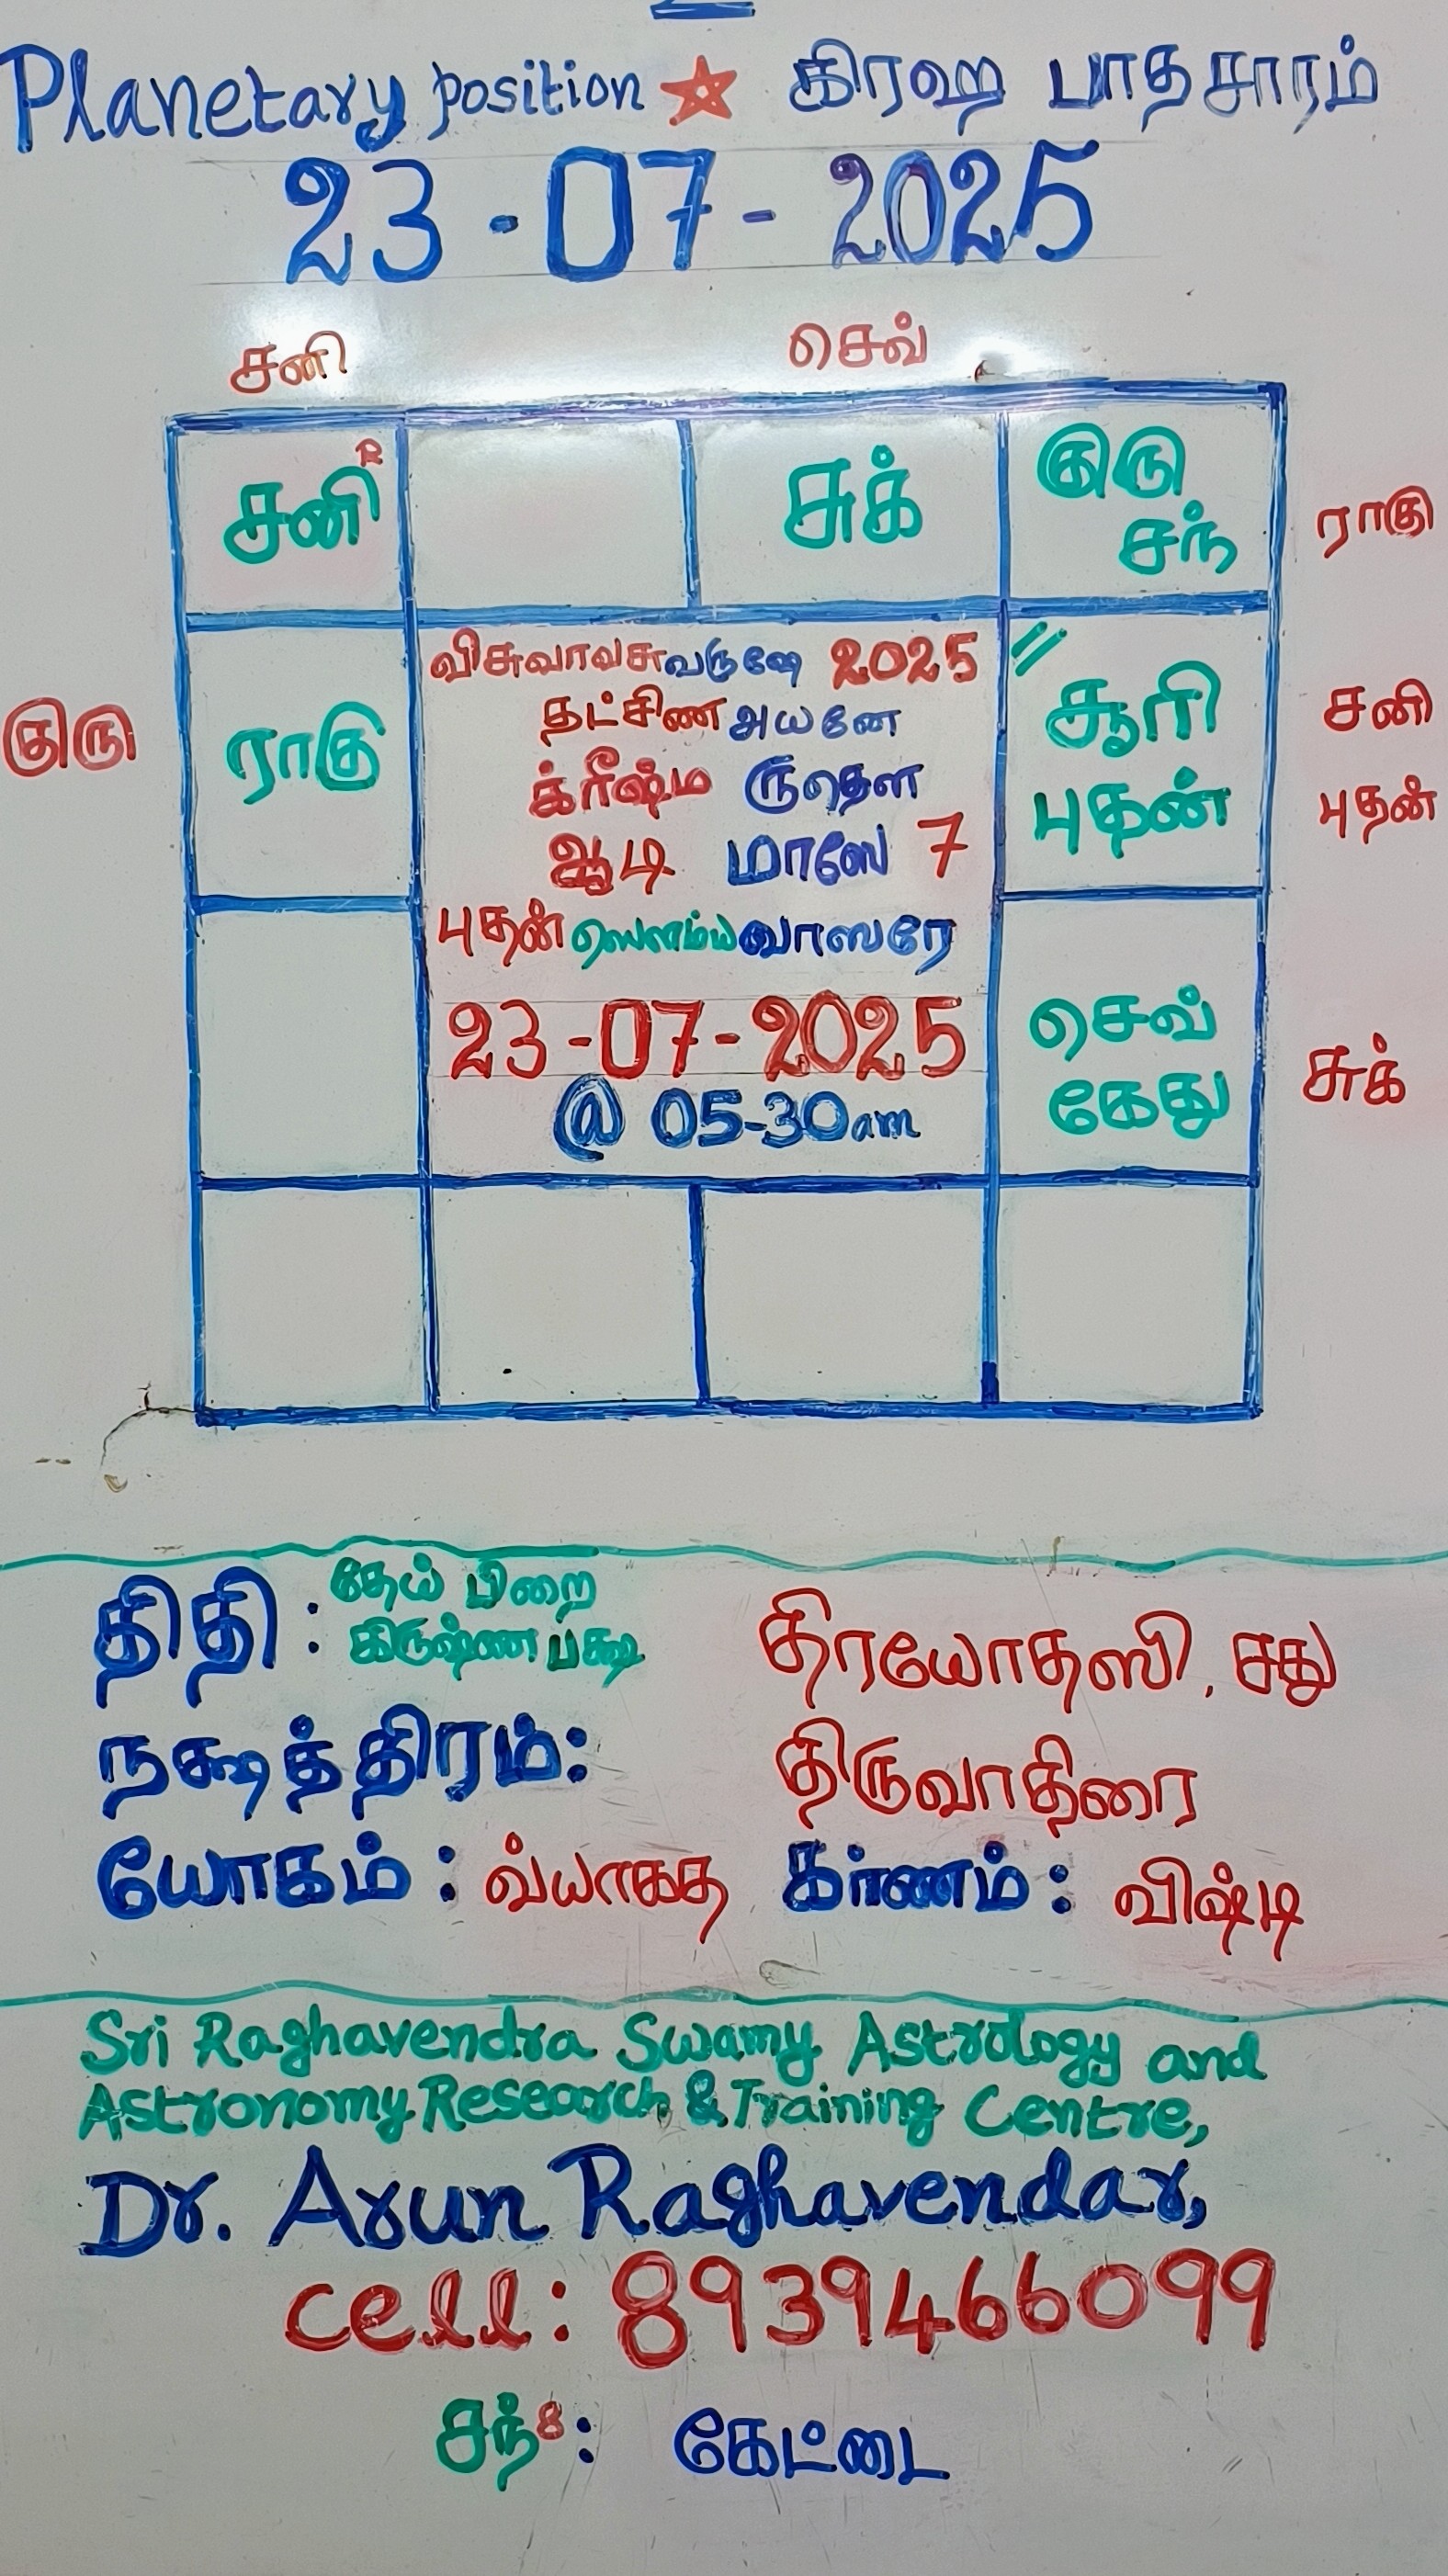 Planetary position ☆ கிரஹ பாதசாரம்
23-07-2025
சனி செவ்
சனி R சுக் குரு
சந் ராகு
விசுவாவசுவருஷே 2025
தட்சிண அயனே
குரு ராகு க்ரீஷ்ம ருதௌ சூரி சனி
ஆடி மாஸே 7 புதன் புதன்
புதன் ஸௌம்ய வாஸரே
23-07-2025 செவ்
@ 05-30am கேது சுக்
திதி : தேய் பிறை
கிருஷ்ண பக்ஷ திரயோதஸி, சது
நக்ஷத்திரம்: திருவாதிரை
யோகம் : வ்யாகத கர்ணம் : விஷ்டி
Sri Raghavendra Swamy Astrology and
Astronomy Research & Training Centre,
Dr. Arun Raghavendar,
cell: 8939466099
சந் 8 : கேட்டை